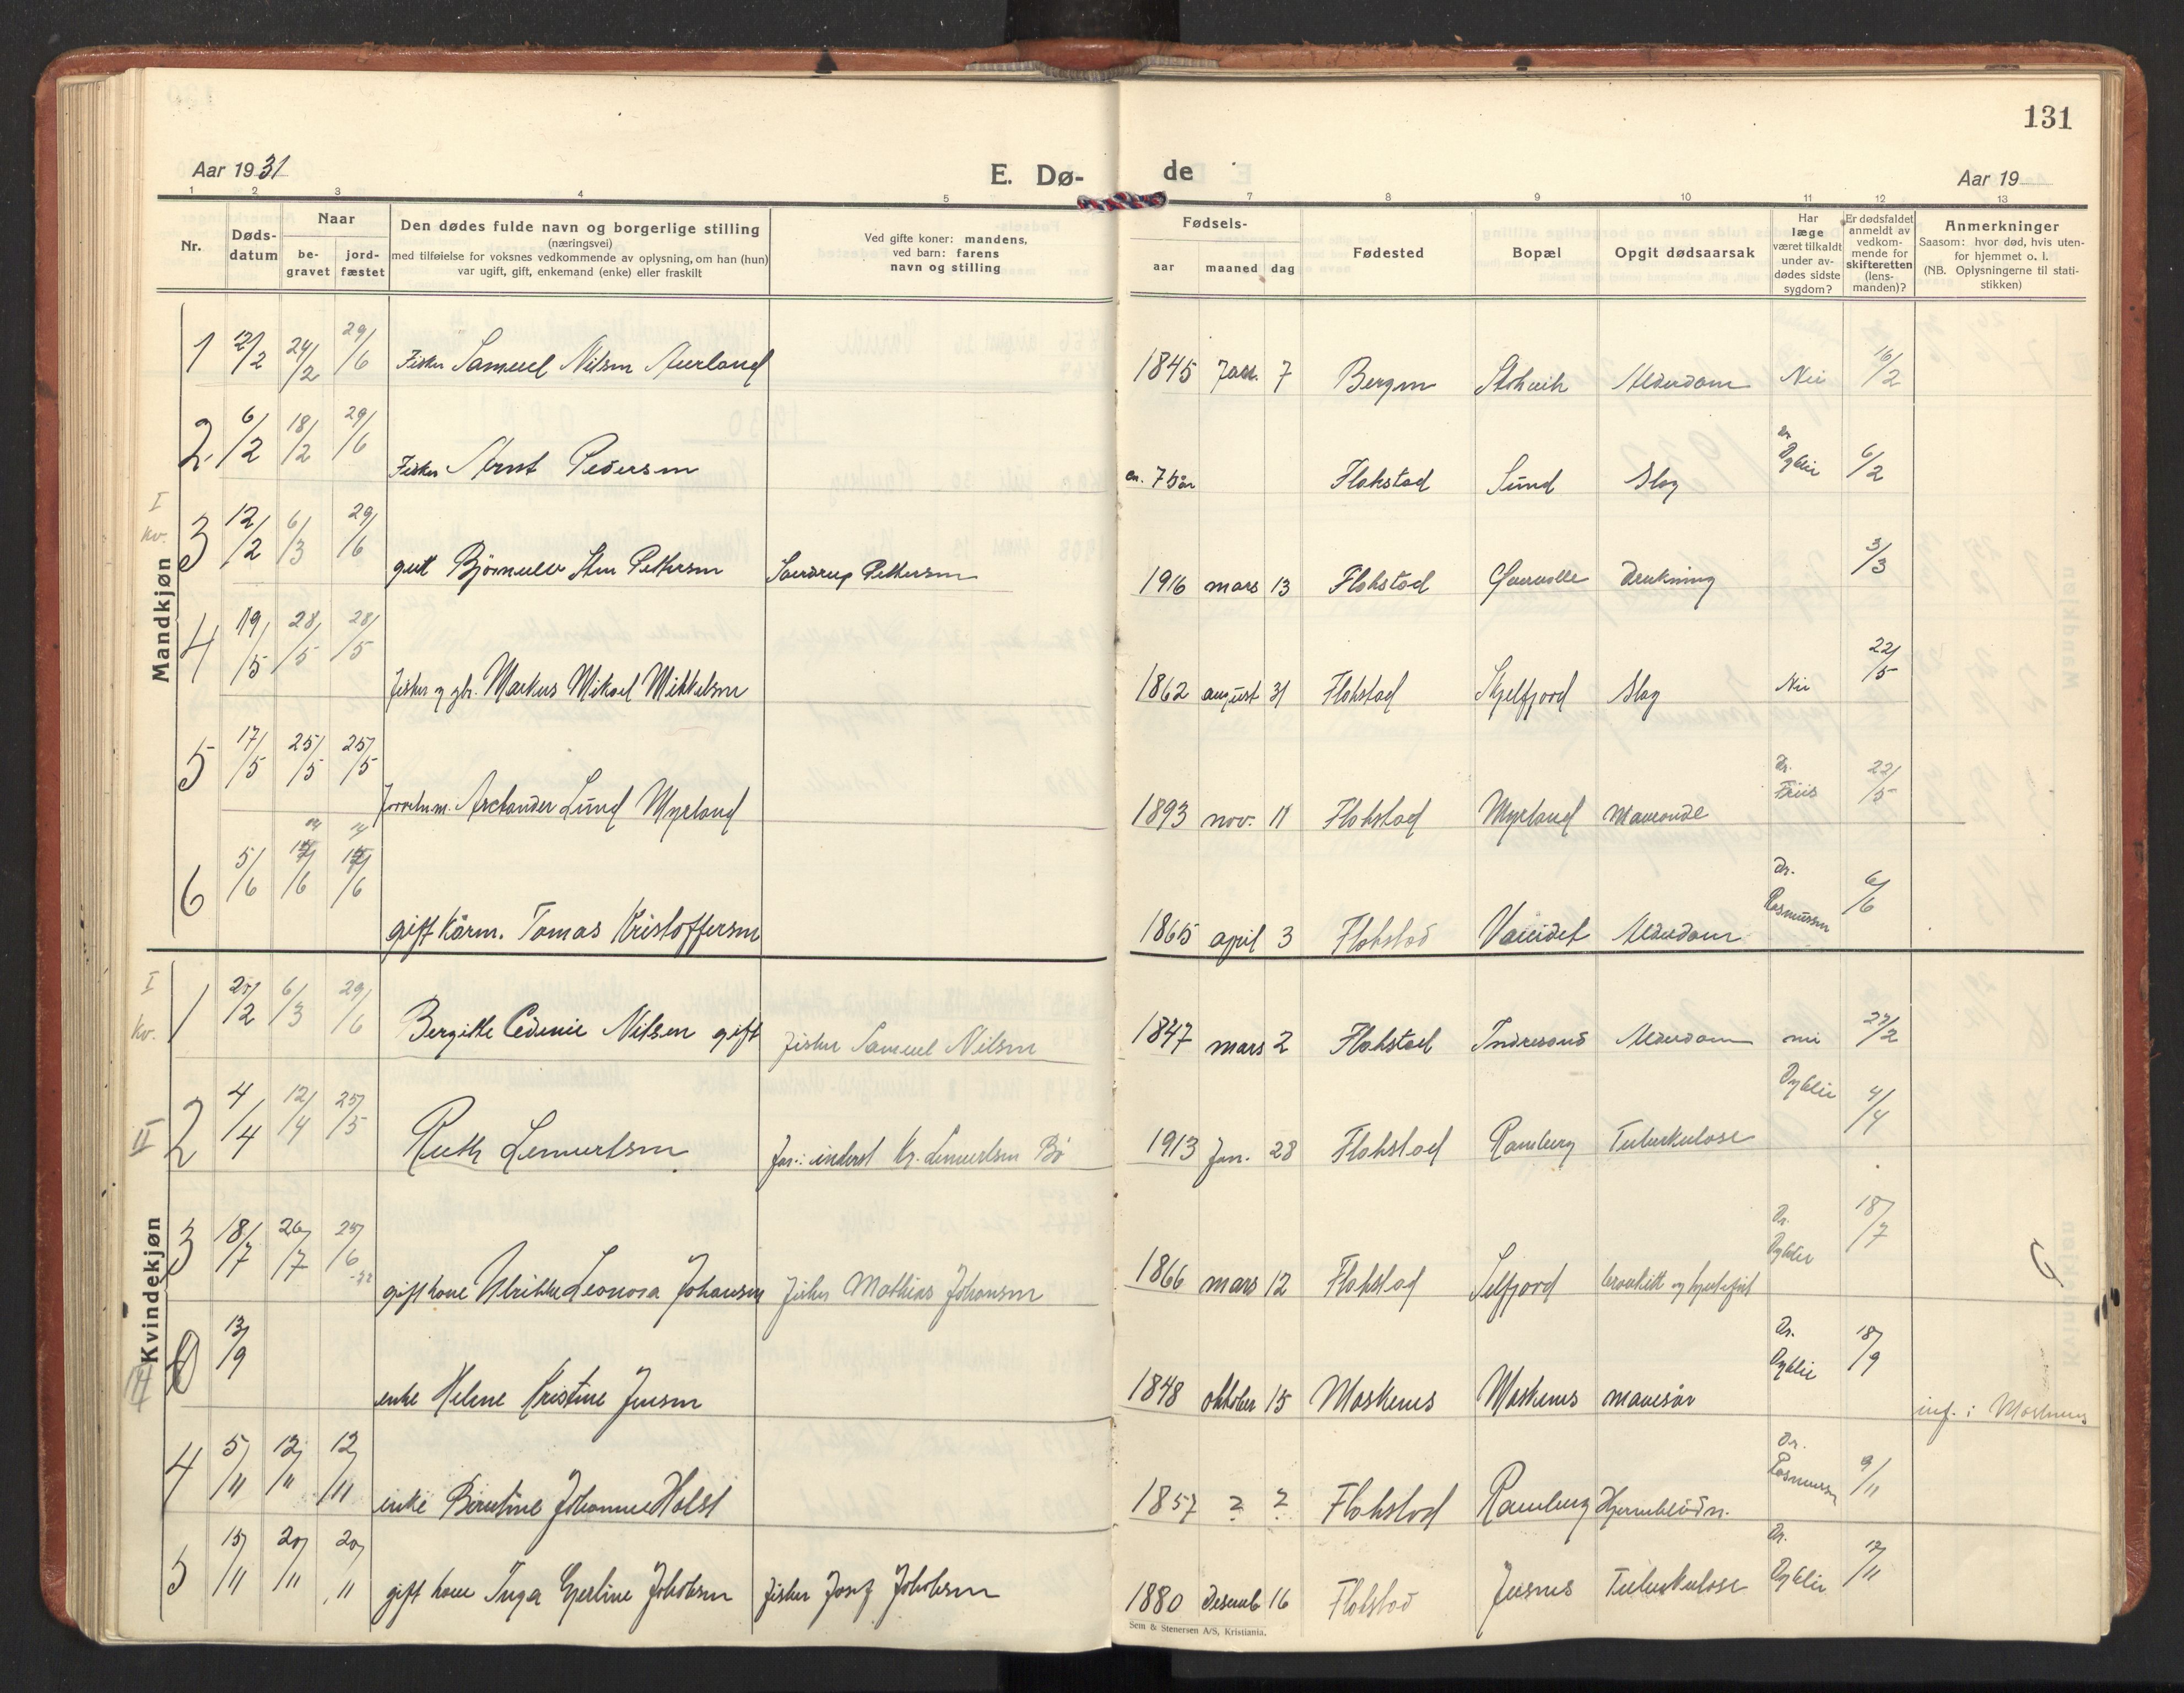 131
Aar 1931
E. Dø-
de
Aar 19
1 2 3 4 5 7 8 9 10 11 12 13
Nr.
Døds-
datum
Naar
be-
gravet
jord-
fæstet
Den dødes fulde navn og borgerlige stilling
(næringsvei)
med tilføielse for voksnes vedkommende av oplysning, om han (hun)
var ugift, gift, enkemand (enke) eller fraskilt
Ved gifte koner: mandens,
ved barn: farens
navn og stilling
Fødsels-
aar maaned dag
Fødested
Bopæl
Opgit dødsaarsak
Har
læge
været tilkaldt
under av-
dødes sidste
sygdom?
Er dødsfaldet
anmeldt av
vedkom-
mende for
skifteretten
(lens-
manden)?
Anmerkninger
Saasom: hvor død, hvis uten-
for hjemmet o. l.
(NB. Oplysningerne til stati-
stikken)
Mandkjøn
I
kv.
1 12/2 24/2 29/6 Fisker Samuel Nilsen Aurland 1845 Jan. 7 Bergen Alderdom Nei 16/2
2 6/2 18/2 29/6 Fisker Arnt Pedersen ca. 75 år Flakstad Sund Slag Dr Dyblie 6/2
3 12/2 6/3 29/6 gut Bjørnulv Sten Pettersen Sverdrup Pettersen 1916 mars 13 Flakstad Drukning 3/3
4 19/5 28/5 28/5 fisker og gbr. Markus Mikael Mikkelsen 1862 august 31 Flakstad Skjelfjord Slag Nei 22/5
5 17/5 25/5 25/5 Lund Myrland 1893 nov. 11 Flakstad Myrland Maveonde Dr. Friis 22/5
6 5/6 14/6 14/6 gift kårm. Tomas Kristoffersen 1865 april 3 Flakstad Vareidet Alderdom Dr. Rasmussen 6/6
Kvindekjøn
I
kv.
1 25/2 6/3 29/6 Bergitte Edenie Nilsen gift fisker Samuel Nilsen 1847 mars 2 Flakstad Indresand Alderdom nei 27/2
II
2 4/4 12/4 25/5 Ruth Lennertsen far: inderst Kr. Lennertsen Bø 1913 Jan. 28 Flakstad Ramberg Tuberkulose Dyblie 4/4
3 18/7 26/7 25/6 -32 gift kone Ulrikke Leonora Johansen fisker Mathias Johansen 1866 mars 12 Flakstad Selfjord bronkitt og hjertefeil Dr. Dyblie 18/7
0 13/9 enke Helene Kristine Jensen 1848 oktober 15 Moskenes Moskenes mavesår Dr. Dyblie 18/9 inf. i Moskenes
4 5/11 12/11 12/11 enke Berntine Johanne Holst 1857 ? ? Flakstad Ramberg Hjerneblødn. Dr. Rasmussen 9/11
5 15/11 20/11 20/11 gift kone Inga Gjertine Jakobsen fisker Josef Jakobsen 1880 Desemb 16 Flakstad Jusnes Tuberkulose Dr. Dyblie 17/11
Sem & Stenersen A/S, Kristiania.